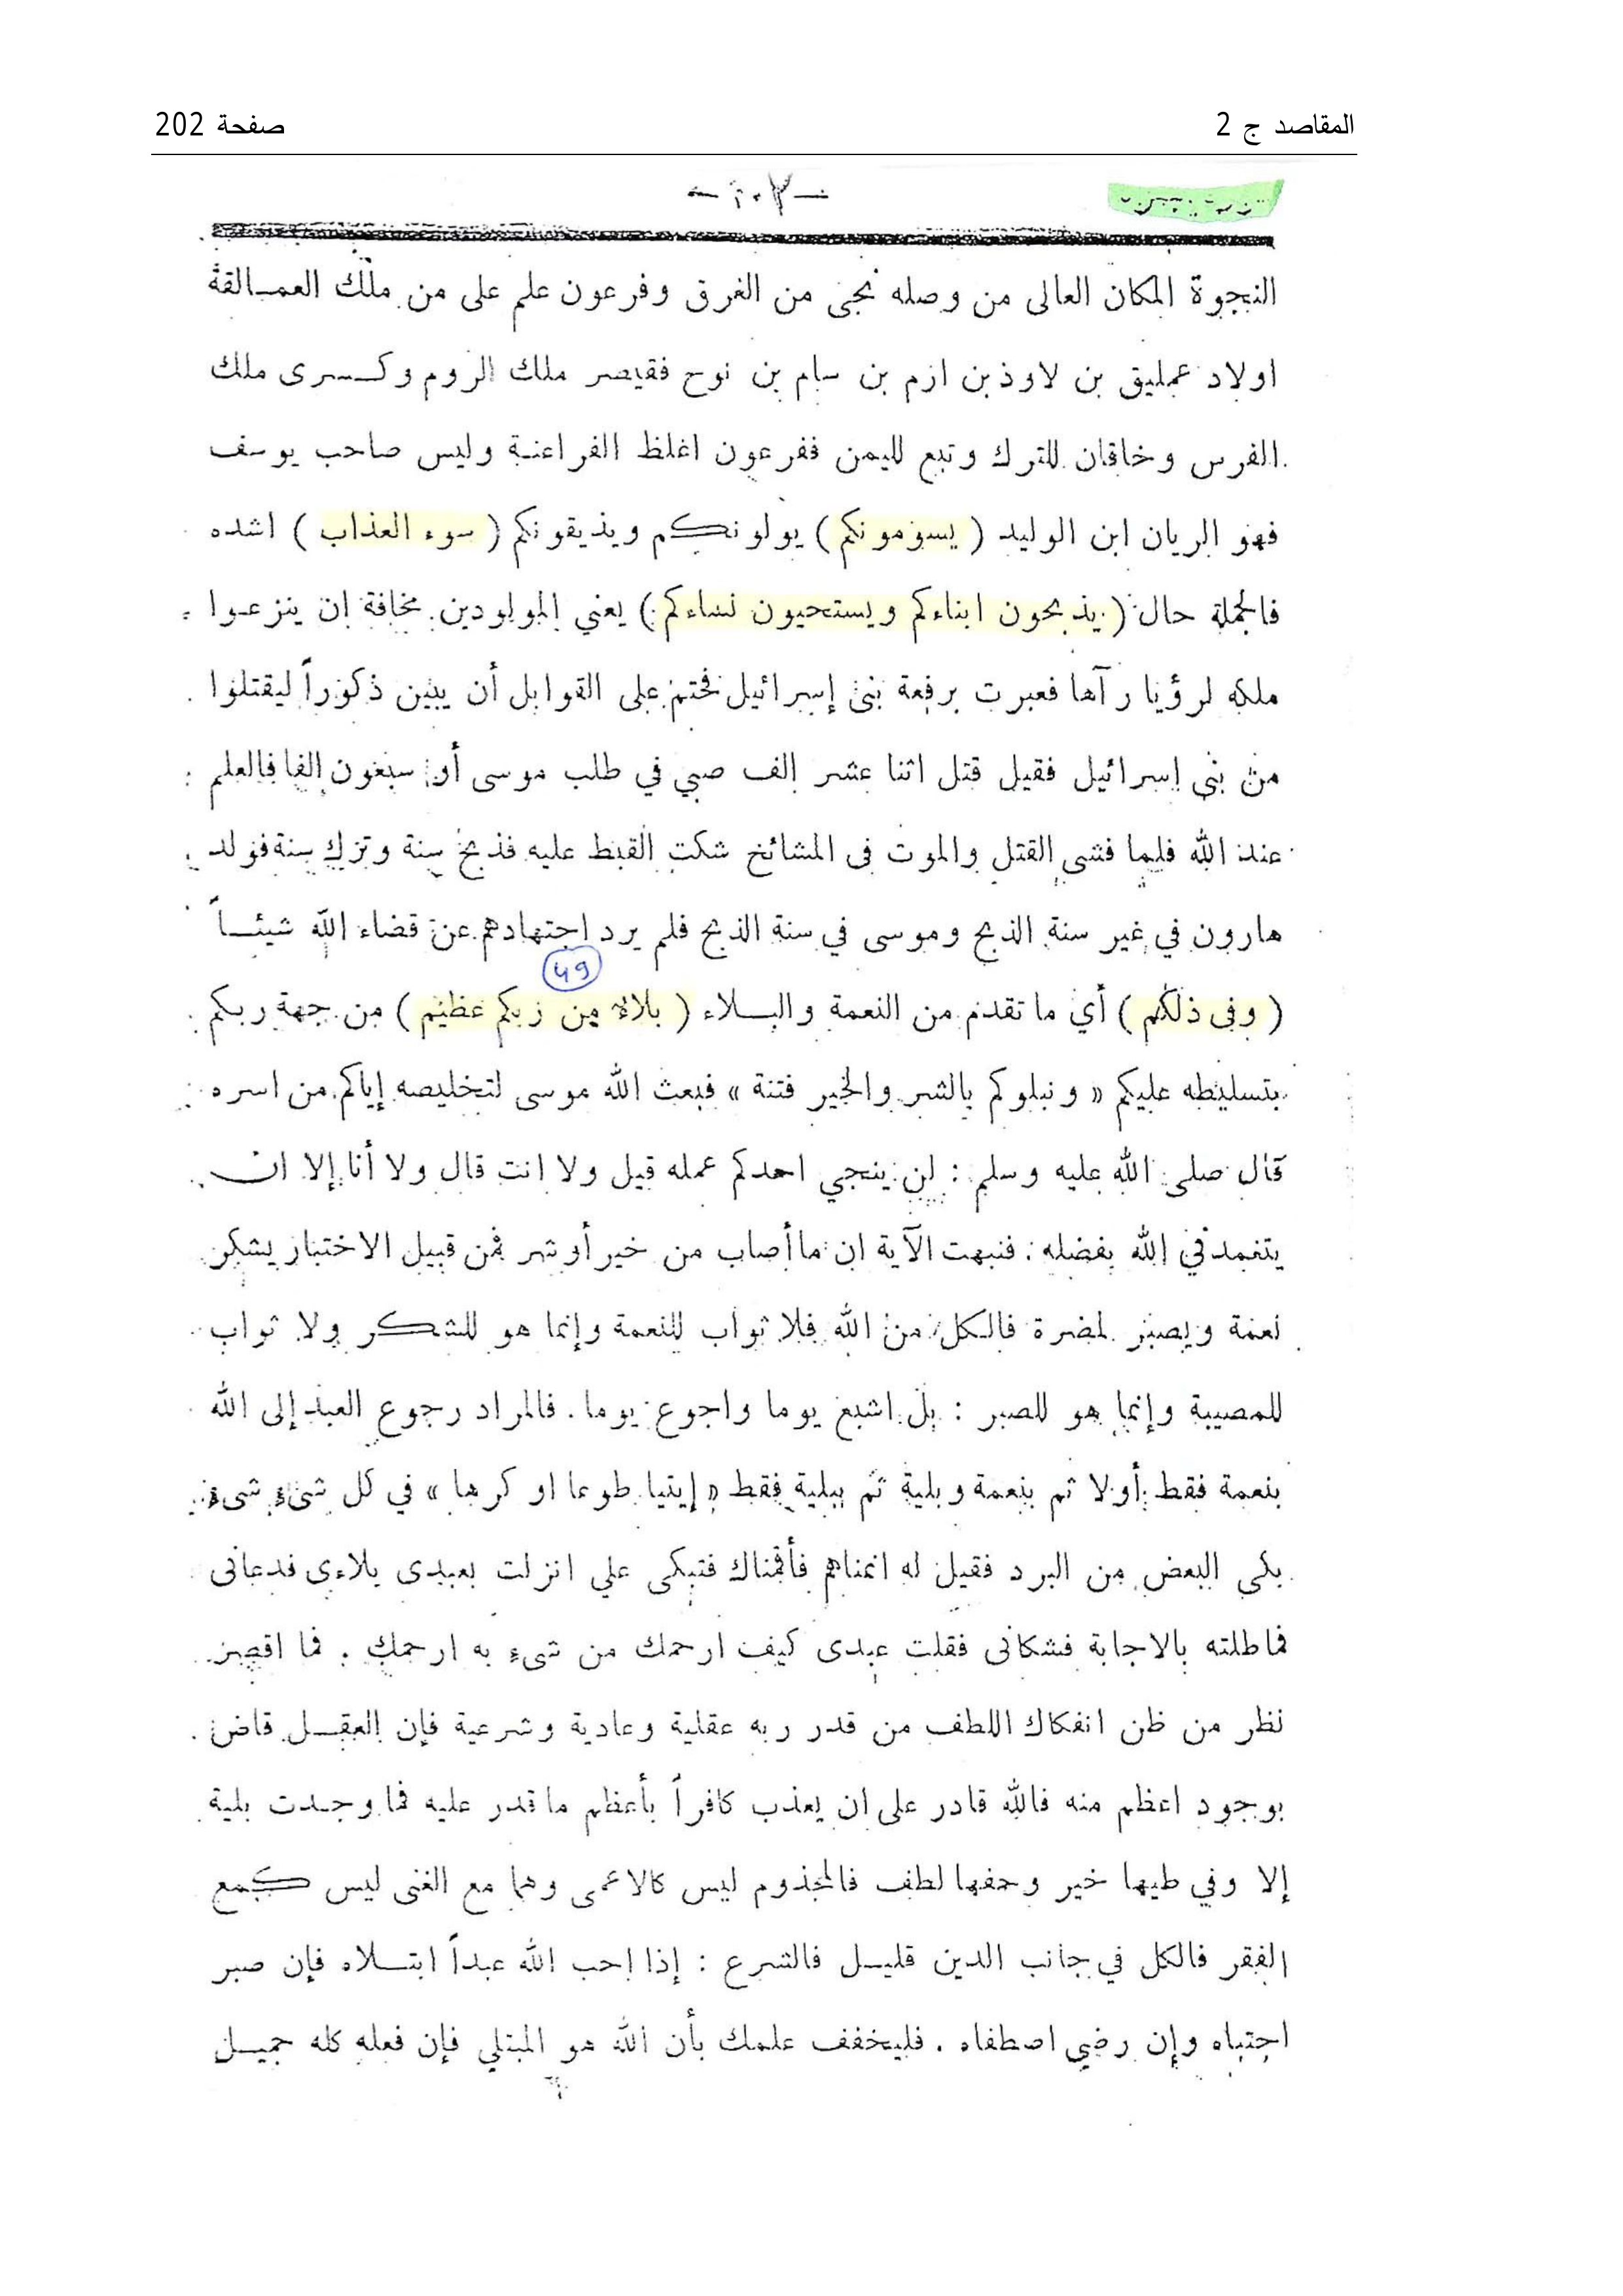 المقاصد ج 2
صفحة 202
النجوة المكان العالى من وصله نجى من الغرق وفرعون علم على من ملك العمـالقة
اولاد عمليق بن لاوذ بن ازم بن سام بن نوح فقيصر ملك الروم وكـسرى ملك
الفرس وخاقان للترك وتبع لليمن ففرعون اغلظ الفراعنة وليس صاحب يوسف
فهو الريان ابن الوليد ( يسومونكم ) يولونكم ويذيقونكم ( سوء العذاب ) اشده
فالجملة حال ( يذبحون ابناءكم ويستحيون نساءكم ) يعني المولودين مخافة ان ينزعوا
ملكه لرؤيا رآها فعبرت برفعة بنى إسرائيل فختم على القوابل أن يبين ذكوراً ليقتلوا
من بنى إسرائيل فقيل قتل اثنا عشر الف صبي في طلب موسى أو سبعون الفا فالعلم
عند الله فلما فشى القتل والموت فى المشائخ شكت القبط عليه فذبح سنة وترك سنة فولد
هارون في غير سنة الذبح وموسى في سنة الذبح فلم يرد اجتهادهم عن قضاء الله شيئـاً
49
( وفى ذلكم ) أي ما تقدم من النعمة والبـلاء ( بلاء من ربكم عظيم ) من جهة ربكم
بتسليطه عليكم « ونبلوكم بالشر والخير فتنة » فبعث الله موسى لتخليصه إياكم من اسره
قال صلى الله عليه وسلم : لن ينجي احدكم عمله قيل ولا انت قال ولا أنا إلا ان
يتغمدني الله بفضله . فنبهت الآية ان ما أصاب من خير أو شر فمن قبيل الاختبار يشكر
نعمة ويصبر لمضرة فالكل من الله فلا ثواب للنعمة وإنما هو للشكر ولا ثواب
للمصيبة وإنما هو للصبر : بل اشبع يوما واجوع يوما . فالمراد رجوع العبد إلى الله
بنعمة فقط أولا ثم بنعمة وبلية ثم ببلية فقط « إيتيا طوعا او كرها » في كل شىء شىء
بكى البعض من البرد فقيل له انمناهم فأقمناك فتبكى علي انزلت بعبدى بلاءى فدعانى
فماطلته بالاجابة فشكانى فقلت عبدى كيف ارحمك من شىء به ارحمك . فما اقصر
نظر من ظن انفكاك اللطف من قدر ربه عقلية وعادية وشرعية فإن العقـل قاض
بوجود اعظم منه فالله قادر على ان يعذب كافراً بأعظم ما قدر عليه فما وجدت بلية
إلا وفي طيها خير وحفها لطف فالمجذوم ليس كالاعمى وهما مع الغنى ليس كجمع
الفقر فالكل في جانب الدين قليـل فالشرع : إذا احب الله عبداً ابتـلاه فإن صبر
اجتباه وإن رضي اصطفاه . فليخفف علمك بأن الله هو المبتلي فإن فعله كله جميـل